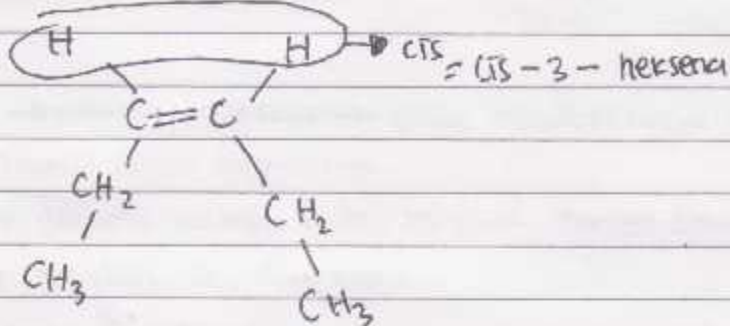 H H → cis = cis - 3 - heksena
C = C
CH₂ CH₂
CH₃ CH₃